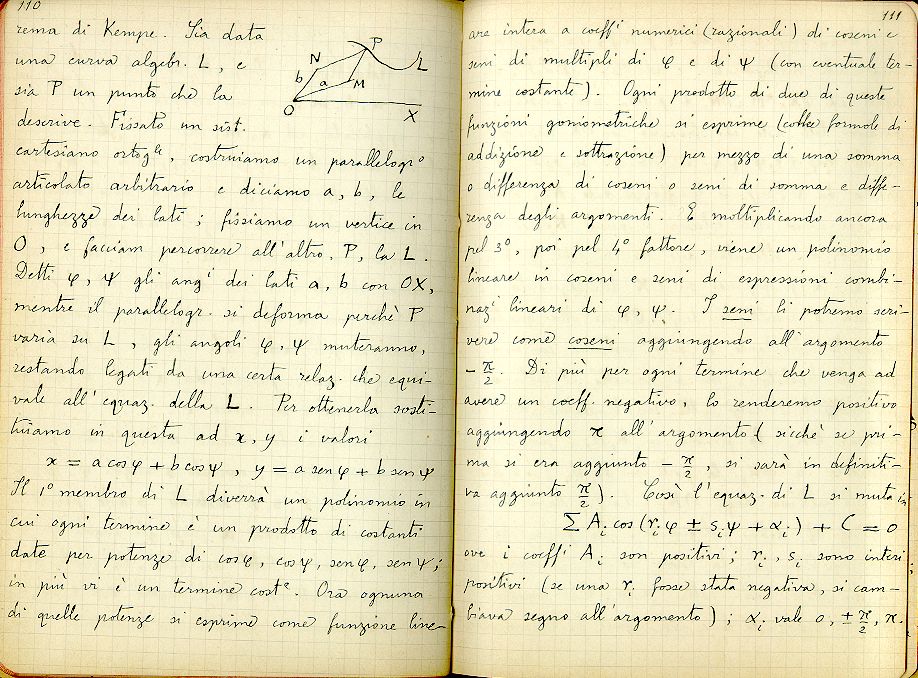 110
rema di Kempe. Sia data
una curva algebr. L, e
sia P un punto che la
descrive. Fissato un sist.
cartesiano ortogˡᵉ, costruiamo un parallelogrº
articolato arbitrario e diciamo a, b, le
lunghezze dei lati; fissiamo un vertice in
O, e facciam percorrere all'altro, P, la L.
Detti φ, ψ gli angⁱ dei lati a, b con OX,
mentre il parallelogr. si deforma perchè P
varia su L, gli angoli φ, ψ muteranno,
restando legati da una certa relaz. che equi-
vale all'equaz. della L. Per ottenerla sosti-
tuiamo in questa ad x, y i valori
x = a cos φ + b cos ψ, y = a sen φ + b sen ψ
Il 1º membro di L diverrà un polinomio in
cui ogni termine è un prodotto di costanti
date per potenze di cos φ, cos ψ, sen φ, sen ψ;
in più vi è un termine costᵉ. Ora ognuna
di quelle potenze si esprime come funzione line-
N P L b a M O X
111
are intera a coeffⁱ numerici (razionali) di coseni e
seni di multipli di φ e di ψ (con eventuale ter-
mine costante). Ogni prodotto di due di queste
funzioni goniometriche si esprime (colle formole di
addizione e sottrazione) per mezzo di una somma
o differenza di coseni o seni di somma e diffe-
renza degli argomenti. E moltiplicando ancora
pel 3º, poi pel 4º fattore, viene un polinomio
lineare in coseni e seni di espressioni combi-
nazⁱ lineari di φ, ψ. I seni li potremo scri-
vere come coseni aggiungendo all'argomento
-π/2. Di più per ogni termine che venga ad
avere un coeff. negativo, lo renderemo positivo
aggiungendo π all'argomento (sicchè se pri-
ma si era aggiunto -π/2, si sarà in definiti-
va aggiunto π/2). Così l'equaz. di L si muta in
Σ Aᵢ cos (rᵢ φ ± sᵢ ψ + αᵢ) + C = 0
ove i coeffⁱ Aᵢ son positivi; rᵢ, sᵢ sono interi
positivi (se una rᵢ fosse stata negativa, si cam-
biava segno all'argomento); αᵢ vale 0, ±π/2, π.